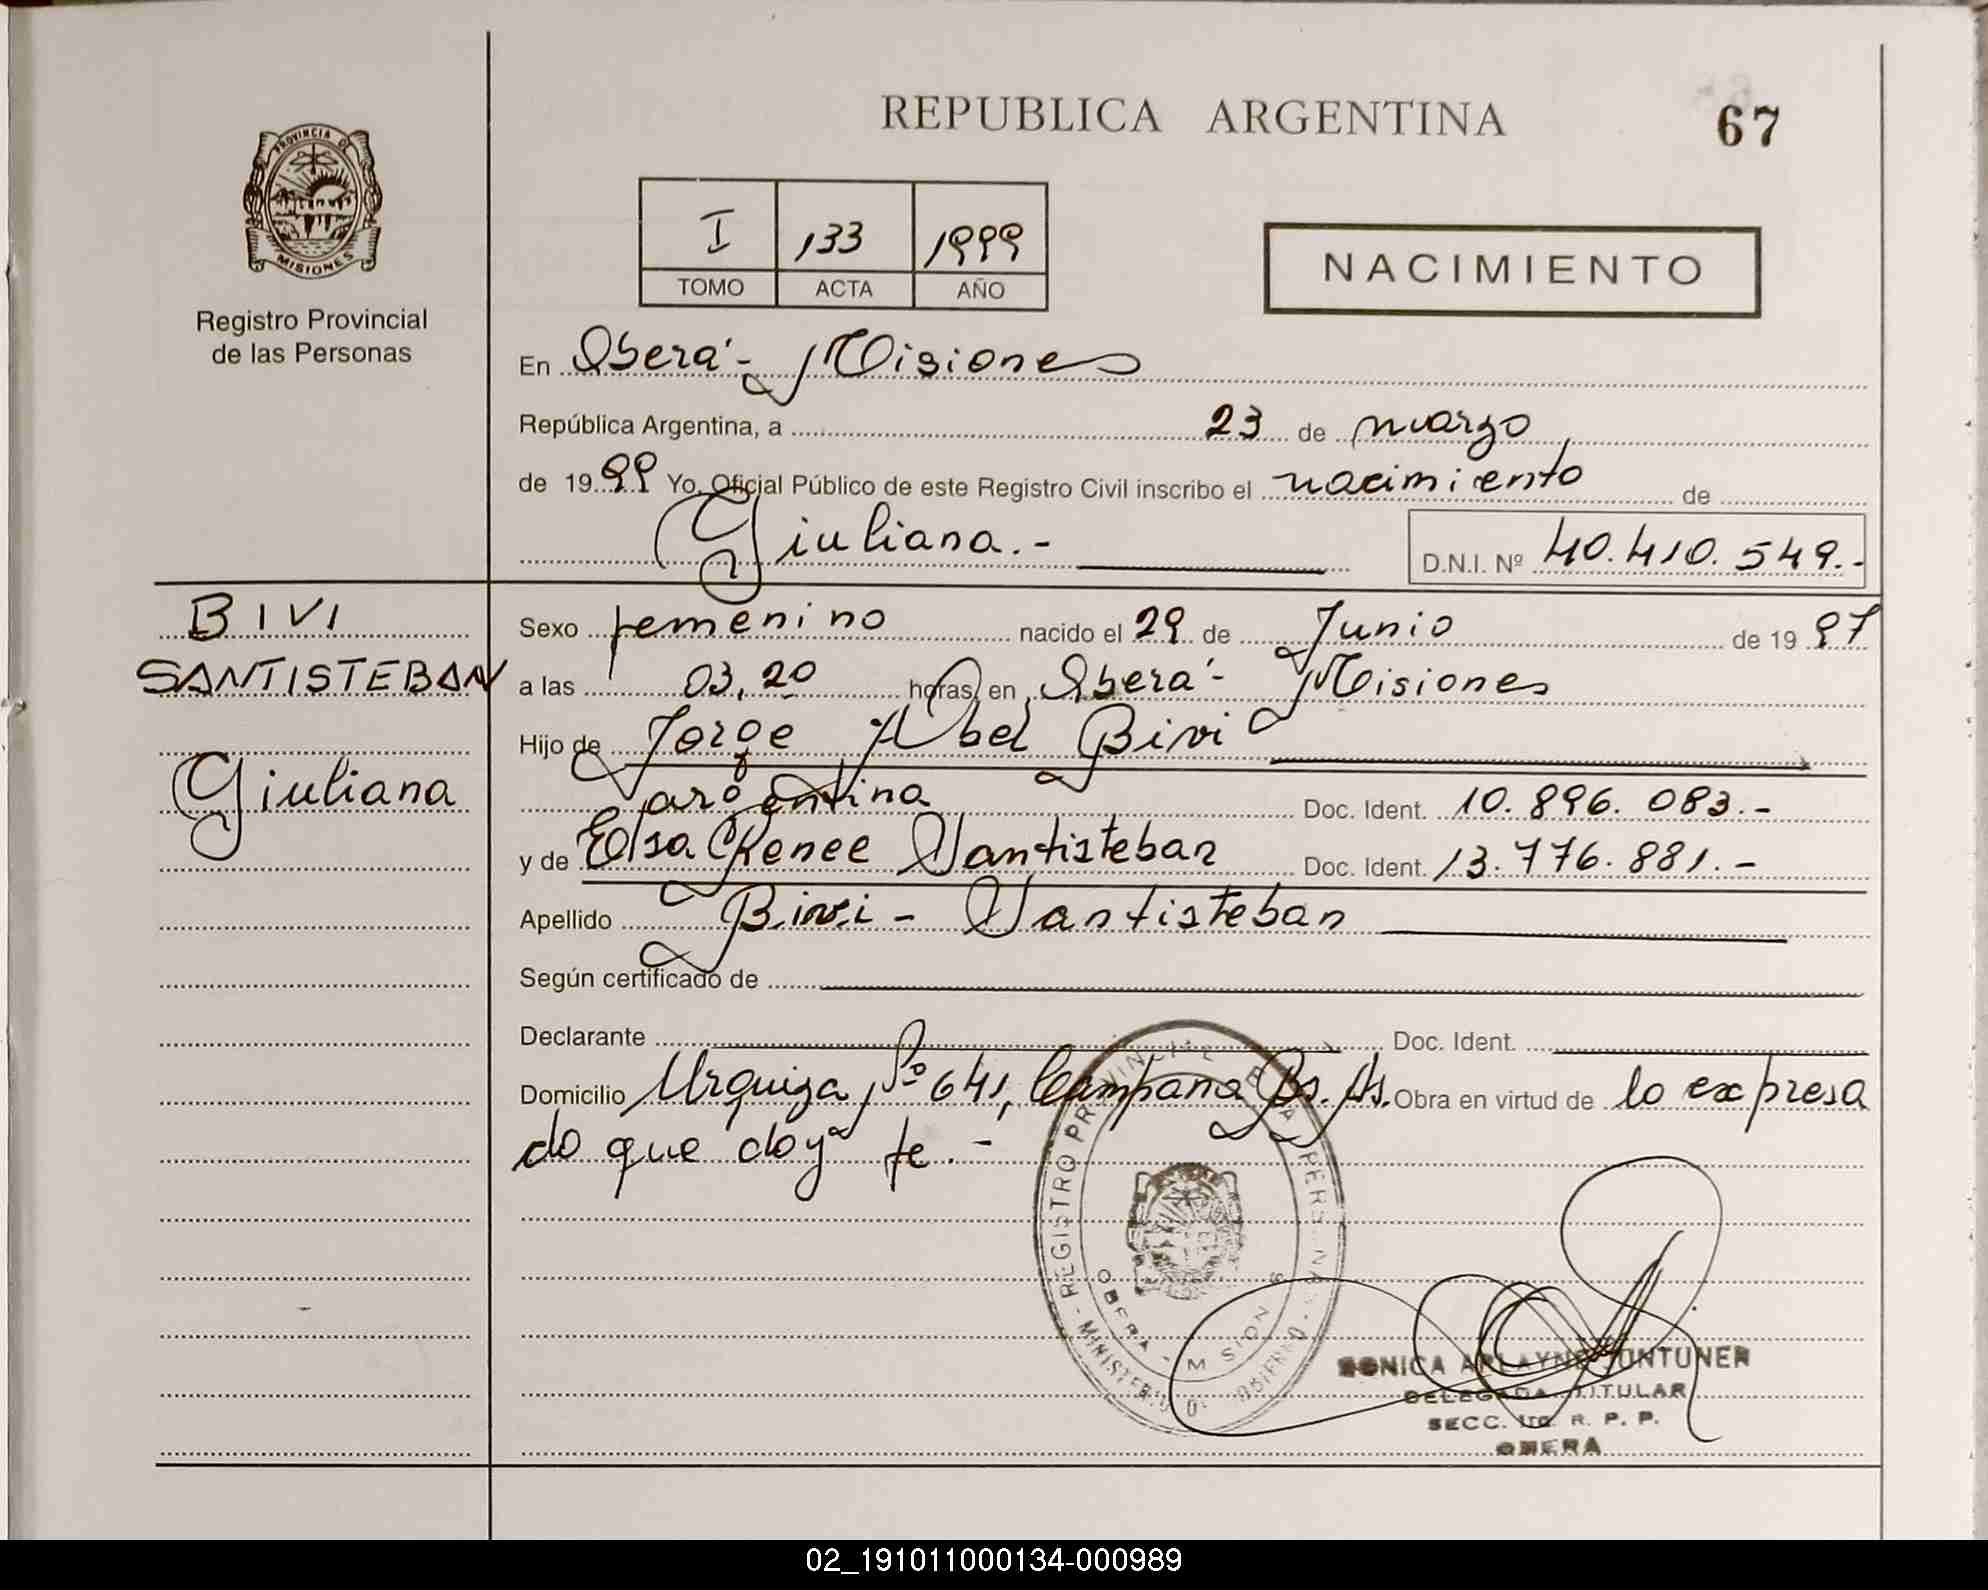 REPUBLICA ARGENTINA
67
PROVINCIA DE
MISIONES
Registro Provincial
de las Personas
I 133 1999
TOMO ACTA AÑO
NACIMIENTO
En Oberá - Misiones
República Argentina, a 23 de marzo
de 1999 Yo, Oficial Público de este Registro Civil inscribo el nacimiento de
Giuliana.-
D.N.I. Nº 40.410.549.-
BIVI
SANTISTEBAN
Giuliana
Sexo femenino nacido el 29 de Junio de 1997
a las 03,20 horas, en Oberá - Misiones
Hijo de Jorge Abel Bivi
argentina Doc. Ident. 10.896.083.-
y de Elsa Renee Santisteban Doc. Ident. 13.776.881.-
Apellido Bivi - Santisteban
Según certificado de
Declarante Doc. Ident.
Domicilio Urquiza Nº 641, Campana Bs. As. Obra en virtud de lo expresa
do que doy fe.-
REGISTRO PROVINCIAL DE LAS PERSONAS
OBERA - MISIONES
MINISTERIO DE GOBIERNO
DELEGADA TITULAR
SECC. R. P. P.
OBERA
02_191011000134-000989